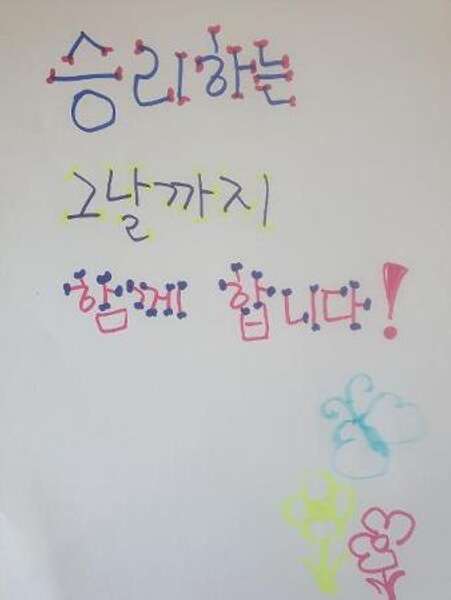 승리하는
그날까지
함께 합니다!